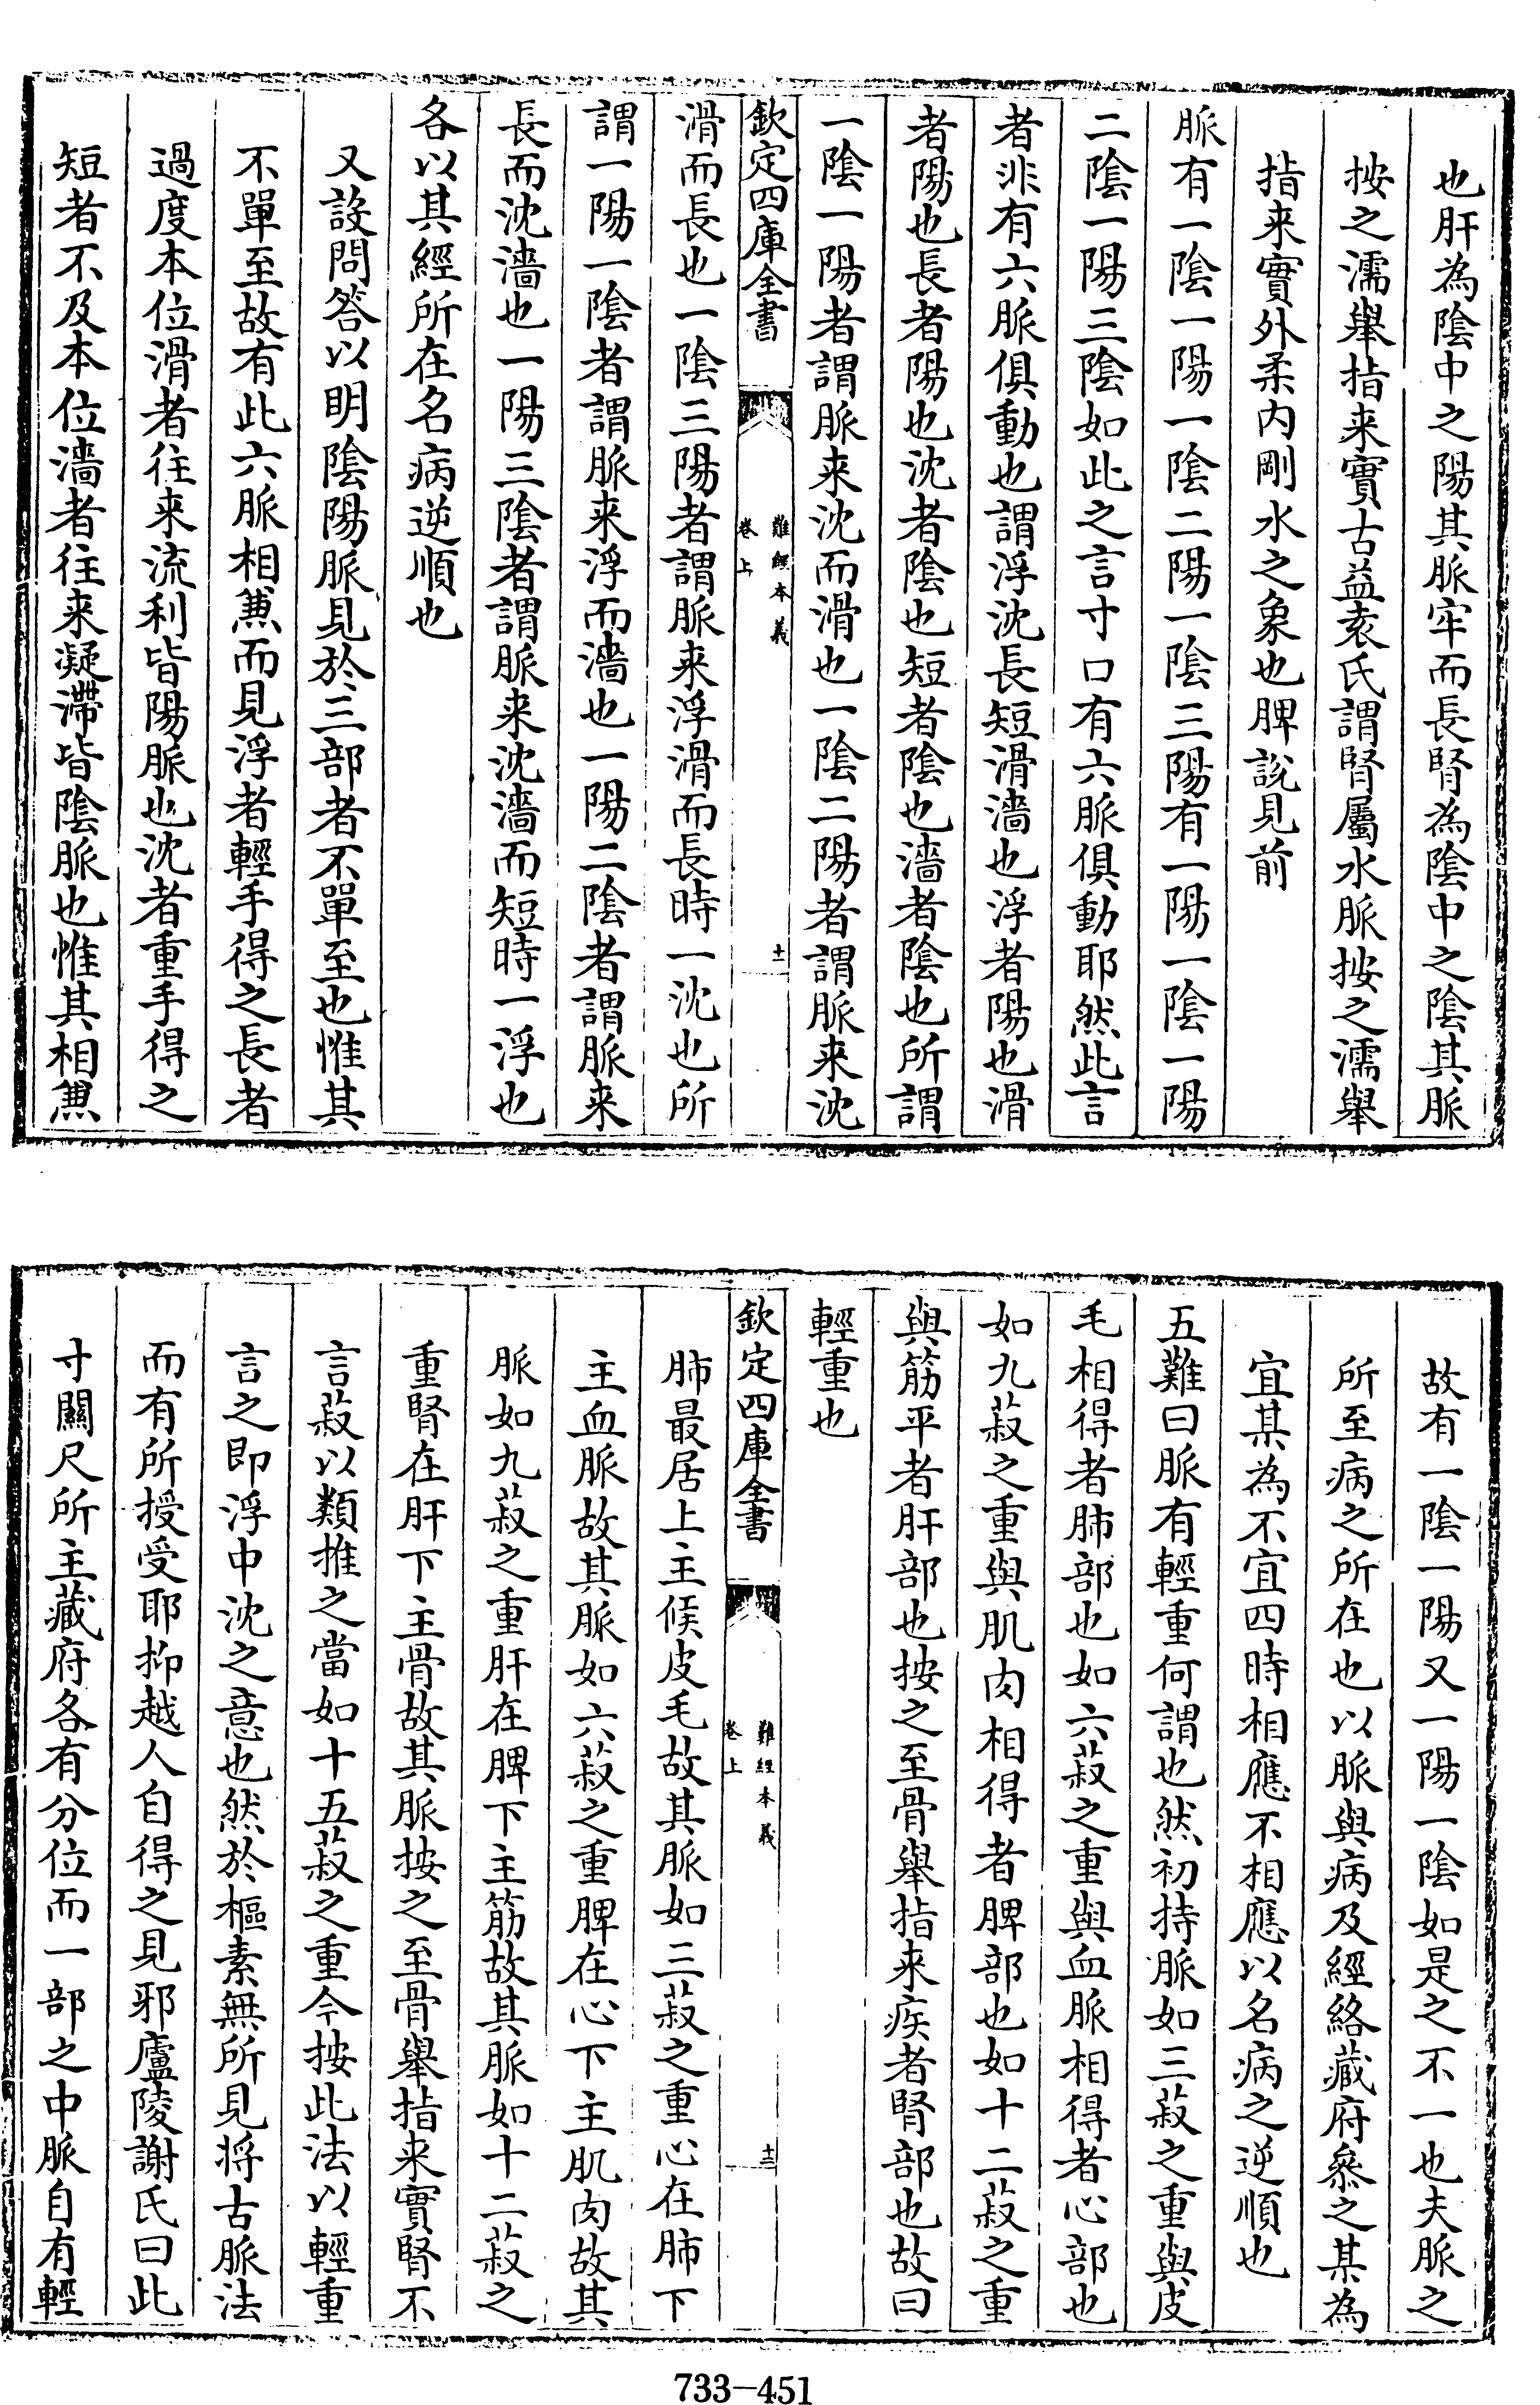 也肝為陰中之陽其脈牢而長腎為陰中之陰其脈
按之濡舉指来實古益袁氏謂腎屬水脈按之濡舉
指来實外柔内剛水之象也脾說見前
脈有一陰一陽一陰二陽一陰三陽有一陽一陰一陽
二陰一陽三陰如此之言寸口有六脈俱動耶然此言
者非有六脈俱動也謂浮沈長短滑濇也浮者陽也滑
者陽也長者陽也沈者陰也短者陰也濇者陰也所謂
一陰一陽者謂脈来沈而滑也一陰二陽者謂脈来沈
欽定四庫全書
難經本義
卷上
十一
滑而長也一陰三陽者謂脈来浮滑而長時一沈也所
謂一陽一陰者謂脈来浮而濇也一陽二陰者謂脈来
長而沈濇也一陽三陰者謂脈来沈濇而短時一浮也
各以其經所在名病逆順也
又設問答以明陰陽脈見於三部者不單至也惟其
不單至故有此六脈相兼而見浮者輕手得之長者
過度本位滑者往来流利皆陽脈也沈者重手得之
短者不及本位濇者往来凝滯皆陰脈也惟其相兼
故有一陰一陽又一陽一陰如是之不一也夫脈之
所至病之所在也以脈與病及經絡藏府叅之某為
宜某為不宜四時相應不相應以名病之逆順也
五難曰脈有輕重何謂也然初持脈如三菽之重與皮
毛相得者肺部也如六菽之重與血脈相得者心部也
如九菽之重與肌肉相得者脾部也如十二菽之重
與筋平者肝部也按之至骨舉指来疾者腎部也故曰
輕重也
欽定四庫全書
難經本義
卷上
十二
肺最居上主候皮毛故其脈如三菽之重心在肺下
主血脈故其脈如六菽之重脾在心下主肌肉故其
脈如九菽之重肝在脾下主筋故其脈如十二菽之
重腎在肝下主骨故其脈按之至骨舉指来實腎不
言菽以類推之當如十五菽之重今按此法以輕重
言之即浮中沈之意也然於樞素無所見将古脈法
而有所授受耶抑越人自得之見邪廬陵謝氏曰此
寸關尺所主藏府各有分位而一部之中脈自有輕
733-451